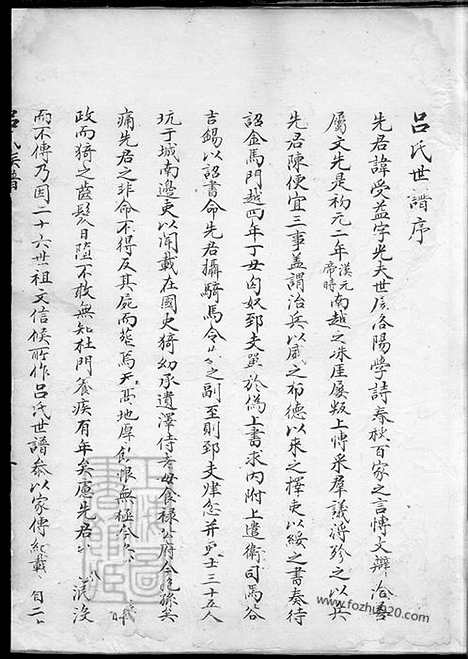 呂氏世譜序
先君諱受益字光夫世居洛陽學詩春秋百家之言博文辯洽善
屬文先是初元二年漢元帝時南越之珠厓屢叛上博采羣議將彂之以兵
先君陳便宜三事蓋謂治兵以威之布德以來之擇吏以綏之書奏待
詔金馬門越四年丁丑匈奴郅支單於偽上書求內附上遣衛司馬谷
吉錫以詔書命先君攝騎馬令以之副至則郅支肆忿并勇士三十五人
坑于城南邊吏以聞載在國史猗幼承遺澤侍老母食祿公府今
痛先君之非命不得反其屍而葬焉天高地厚飲恨無極今
政而猗之齒髮日墮不敢無知杜門養疾有年矣慮先君 湮沒
而不傳乃因二十六世祖文信侯所作呂氏世譜叅以家傳紀載 自二
呂氏族譜
www.fozhu920.com